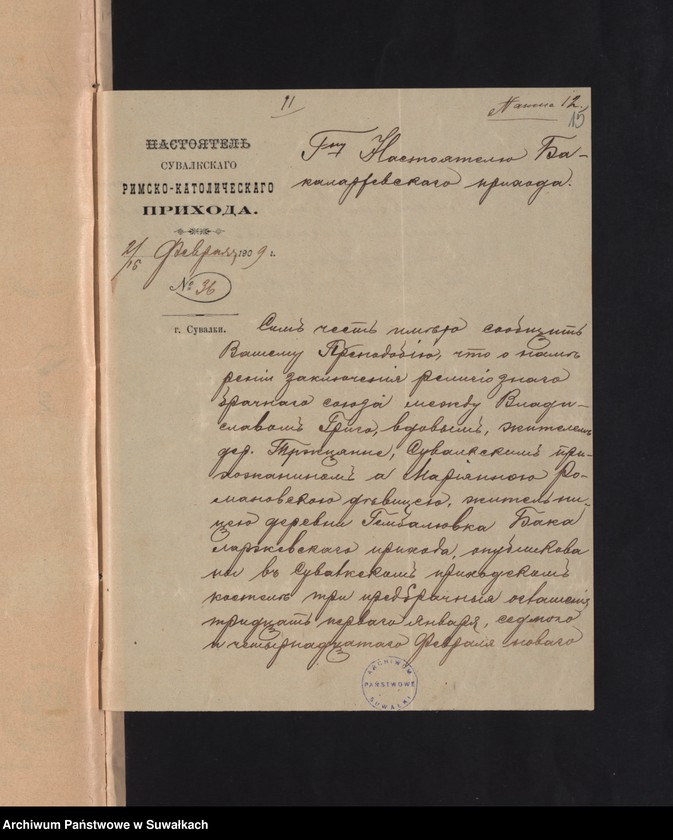 11
12
15
НАСТОЯТЕЛЬ
СУВАЛКСКАГО
РИМСКО-КАТОЛИЧЕСКАГО
ПРИХОДА.
Гну Настоятелю Ба-
каларжевскаго прихода.
2/15 Февраля 1909 г.
№ 36
г. Сувалки.
Симъ честь имѣю сообщить
Вашему Преподобію, что о намѣ
реніи заключенія религіознаго
брачнаго союза между Влади-
славомъ Григо, вдовымъ, жителемъ
дер. Тртцянне, Сувалкскимъ при-
хожаниномъ а Маріянною Ро-
мановскою дѣвицею, жительни-
цею деревни Гембалювка Бака
ларжевскаго прихода, опубликова
ны въ Сувалкскомъ приходскомъ
костелѣ три предбрачныя оглашенія
тридцать перваго Января, седмого
и четырнадцатаго Февраля новаго
ARCHIWUM
PAŃSTWOWE
SUWAŁKI
Archiwum Państwowe w Suwałkach